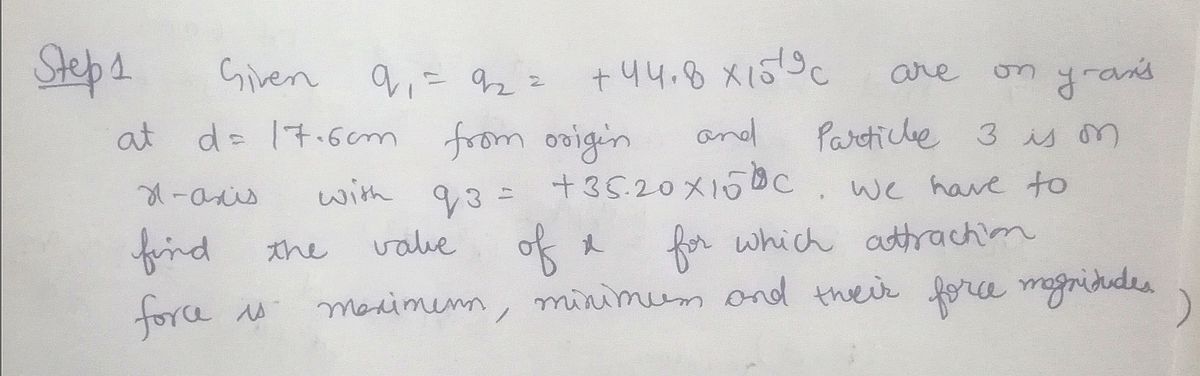 Step 1 Given q₁ = q₂ = +44.8 × 10⁻¹⁹ C are on y-axis
at d = 17.6cm from origin and Particle 3 is on
x-axis with q3 = +35.20 × 10 C. We have to
find the value of x for which attraction
force is maximum, minimum and their force magnitudes)